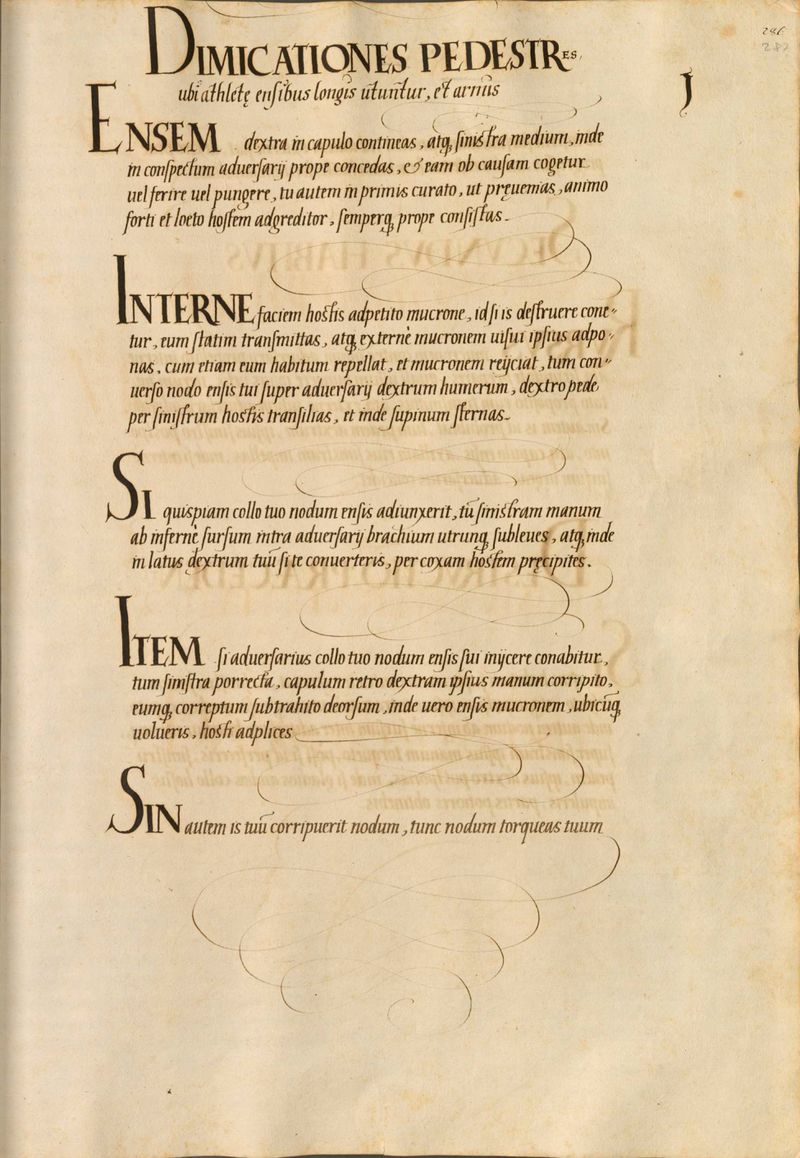 J
DIMICATIONES PEDESTRES,
ubi athletę ensibus longis utuntur, et armis
ENSEM dextra in capulo contineas, atq, sinistra medium, inde
in conspectum aduersarij prope concedas, et eam ob causam cogetur
uel ferire uel pungere, tu autem inprimis curato, ut pręuenias, animo
forti et loeto hostem adgreditor, semperq, prope consistas.
INTERNE faciem hostis adpetito mucrone, id si is destruere cone-
tur, eum statim transmittas, atq, externè mucronem uisui ipsius adpo-
nas, cum etiam eum habitum repellat, et mucronem reijciat, tum con-
uerso nodo ensis tui super aduersarij dextrum humerum, dextro pede
per sinistrum hostis transilias, et inde supinum sternas.
SI quispiam collo tuo nodum ensis adiunxerit, tū sinistram manum
ab infernè sursum intra aduersarij brachium utrunq, subleues, atq, inde
in latus dextrum tuū si te conuerteris, per coxam hostem pręcipites.
ITEM si aduersarius collo tuo nodum ensis sui inijcere conabitur,
tum sinistra porrecta, capulum retro dextram ipsius manum corripito,
eumq, correptum subtrahito deorsum, inde uero ensis mucronem, ubicūq,
uolueris, hosti adplices
SIN autem is tuū corripuerit nodum, tunc nodum torqueas tuum